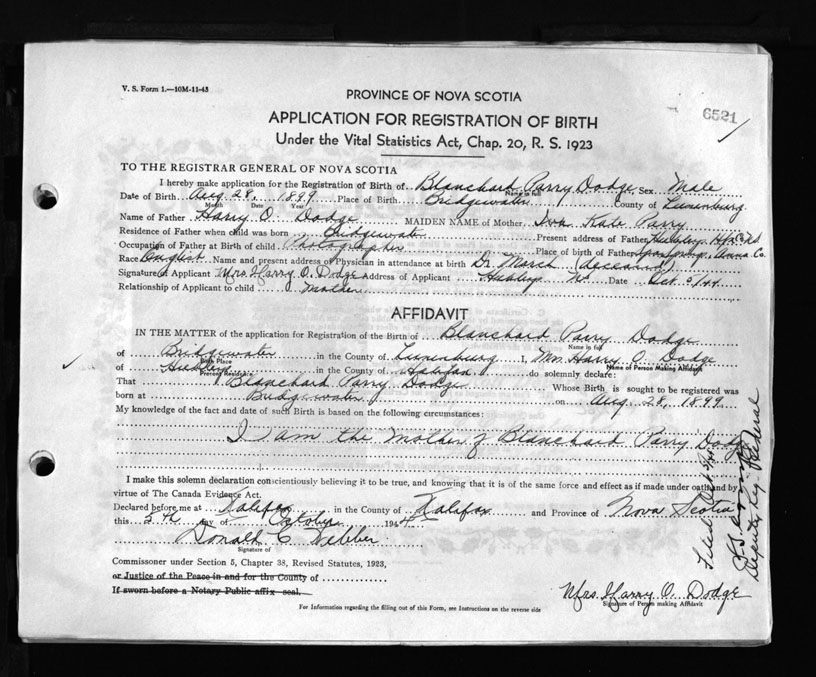 V. S. Form 1.—10M-11-43
PROVINCE OF NOVA SCOTIA
6521
APPLICATION FOR REGISTRATION OF BIRTH
Under the Vital Statistics Act, Chap. 20, R. S. 1923
TO THE REGISTRAR GENERAL OF NOVA SCOTIA
I hereby make application for the Registration of Birth of Blanchard Parry Dodge Sex Male
Name in full
Date of Birth Aug 28, 1899 Place of Birth Bridgewater County of Lunenburg
Month Date Year
Name of Father Harry O. Dodge MAIDEN NAME of Mother Iva Kate Parry
Residence of Father when child was born Bridgewater Present address of Father Hubley Hfx Co
Occupation of Father at Birth of child Photographer Place of birth of Father Anna Co.
Race English Name and present address of Physician in attendance at birth Dr. March (deceased)
Signature of Applicant Mrs. Harry O. Dodge Address of Applicant Hubley Date Oct 5/44
Relationship of Applicant to child Mother
AFFIDAVIT
IN THE MATTER of the application for Registration of the Birth of Blanchard Parry Dodge
Name in full
of Bridgewater in the County of Lunenburg I, Mrs Harry O. Dodge
Birth Place Name of Person Making Affidavit
of Hubley in the County of Halifax do solemnly declare:
Present Residence
That Blanchard Parry Dodge Whose Birth is sought to be registered was
born at Bridgewater on Aug 28, 1899
My knowledge of the fact and date of such Birth is based on the following circumstances:
I am the Mother of Blanchard Parry Dodge
I make this solemn declaration conscientiously believing it to be true, and knowing that it is of the same force and effect as if made under oath and by
virtue of The Canada Evidence Act.
Declared before me at Halifax in the County of Halifax and Province of Nova Scotia
this 5th day of October 1944
Donald C Webber
Signature of
Commissoner under Section 5, Chapter 38, Revised Statutes, 1923,
or Justice of the Peace in and for the County of
If sworn before a Notary Public affix seal.
Mrs. Harry O. Dodge
Signature of Person making Affidavit
For Information regarding the filling out of this Form, see Instructions on the reverse side
Filed Oct
Deputy Reg